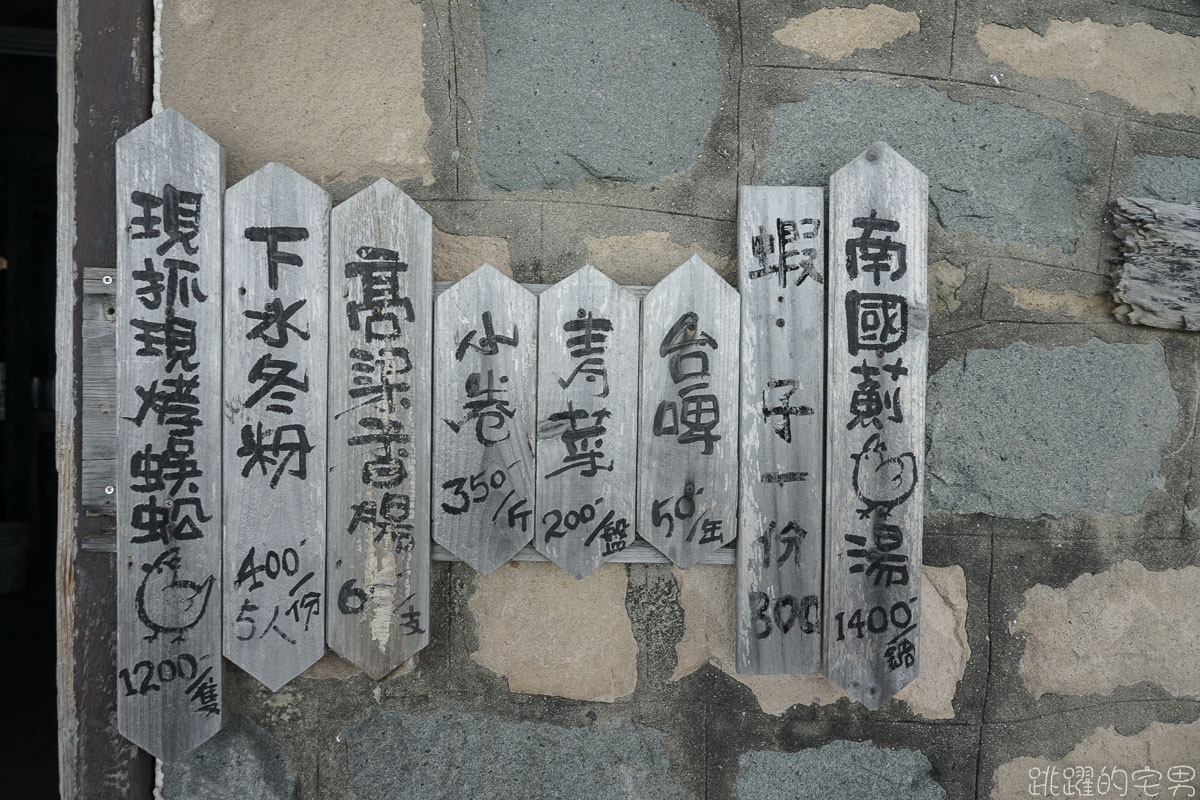 現抓現烤蜈蚣
1200-/隻
下水冬粉
400-/
5人份
高粱香腸
/支
小卷
350-/斤
青菜
200-/盤
台啤
50-/缶
蝦.子一份
300
南國薊湯
1400-/鍋
跳躍的宅男